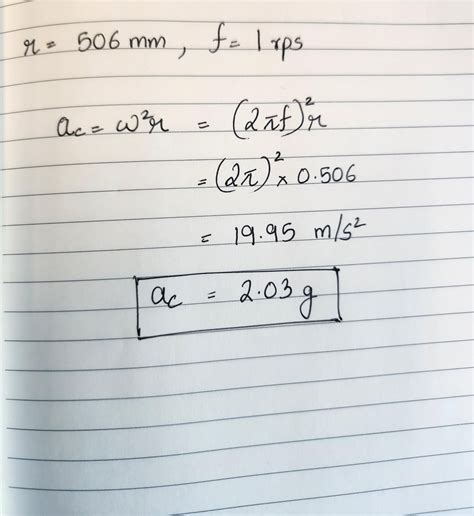 r = 506 mm, f = 1 rps
ac = ω²r = (2πf)²r
= (2π)² × 0.506
= 19.95 m/s²
ac = 2.03 g